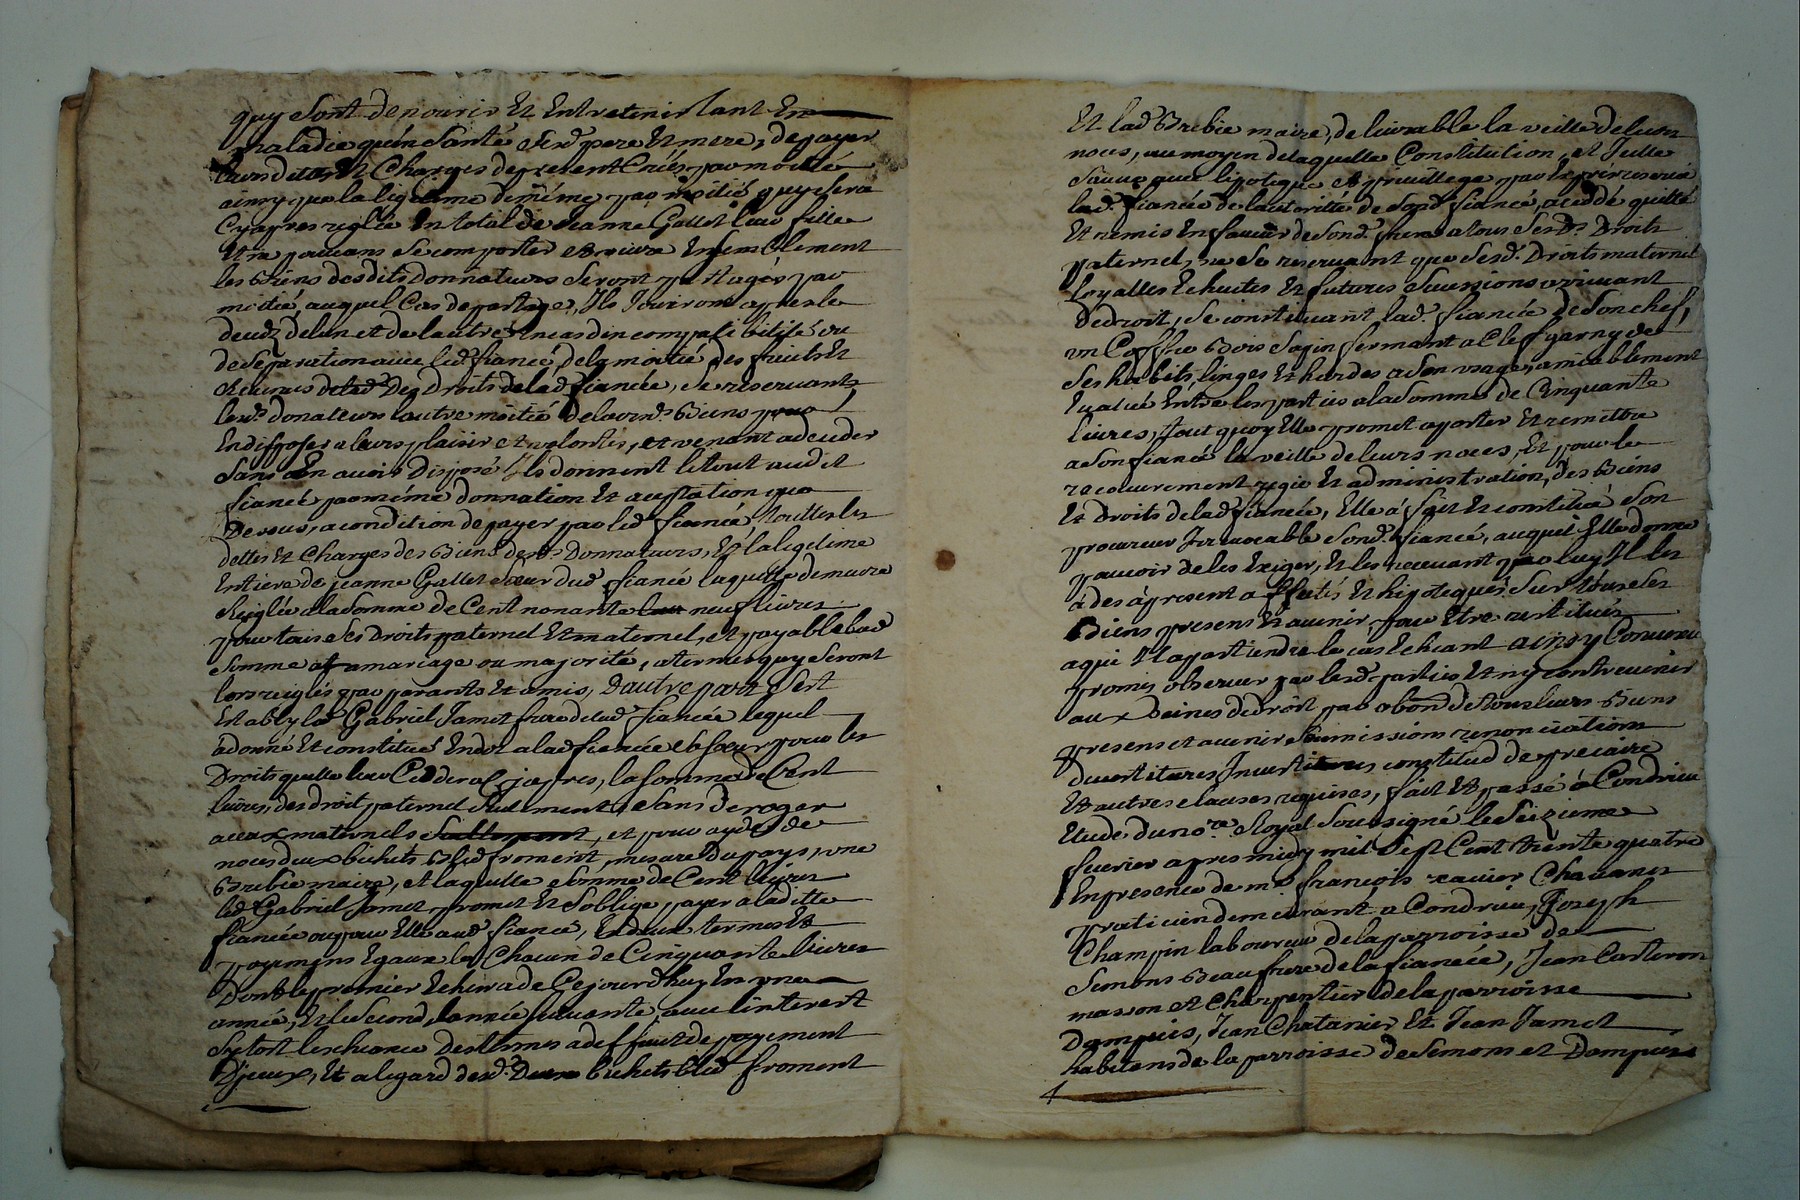 quy sont de nourir Et Entretenir tant En
maladie qu'en Santé Sesd. pere Et mere, de payer
leurs dettes Et Charges de present Créés par moitié
ainsy que la ligitime de même par moitié quy sera
Cy apres reglée En total de Jeanne Gallet leur fille
Et ne pouvans Se comporter Et vivre Ensemblement
les Biens desdits Donnateurs Seront partagés par
moitié, auquel Cas de partage, Ils Jouiront apres le
deceds de lun et de lautre En cas d'incompatibilité ou
de Séparation avec led. fiancé, de la moitié des fruits Et
Revenus des Droits de lad. fiancée, Se reservants
lesd. donateurs lautre moitié de leursd. Biens pour
En disposer a leurs plaisir et volontés, et venant a deceder
Sans En avoir Disposé Ils donnent le tout audit
fiancé par même donnation Et acceptation que
Dessus, a condition de payer par led. fiancé touttes les
dettes Et Charges des Biens desd. Donnateurs, Et la ligitime
Entiere de jeanne Gallet Sœur dud. fiancé laquelle demeure
Reiglée a la Somme de Cent nonante neuf livres
pour tous Ses Droits paternel Et maternel, et payable lad.
Somme a mariage ou majorité, a termes quy Seront
lors reiglés par parants Et amis, D'autre part S'est
Estably led. Gabriel Jamet frere de lad. fiancée lequel
a donné Et constitué En dot a lad. fiancée Sa Sœur pour les
Droits quelle luy Ceddera Cy apres, la Somme de Cent
livres, des droit paternel Seulement, Sans deroger
a ceux maternels Seullement, et pour aydes de
noces deux bichets bled froment, mesure Du pays, une
Brebie maire, Et laquelle Somme de Cent livres
led. Gabriel Jamet promet Et S'oblige payer a laditte
fiancée ou pour Elle aud. fiancé, En deux termes Et
payemens Egaux de Chacun de Cinquante livres
Dont le premier Echera de Ce jourdhuy En une
année, Et le Second, lannée Suivante avec l'interest
Sytost lescheance des termes a deffaut de payement
D'jceux, Et a legard desd. Deux bichets bled froment
Et lad. Brebie maire, delivrable la veille de leurs
noces, au moyen de laquelle Constitution, et Icelle
Sauve avec hipoteque Et privillege
lad. fiancée de lautoritté de Sond. fiancé, a ceddé quitté
Et remis En faveur de Sond. frere a tous Sesd. Droits
paternel, ne Se reservant que Sesd. Droits maternel
loyalles Echuites Et futures Sucessions arrivant
De droit, Se constituant lad. fiancée de Son chef,
un Coffre Bois Sapin fermant a Clef, garny de
Ses habits, linges Et hardes a Son usage, amiablement
Evalué Entre les parties a la Somme de Cinquante
livres, tout quoy Elle promet aporter Et remettre
a Son fiancé la veille de leurs noces, Et pour le
recouvrement regie Et administration, des Biens
Et Droits de lad. fiancée, Elle a fait Et constitué Son
procureur Irrevocable Sond. fiancé, auquel Elle donne
pouvoir de les Exiger, Et les recevant par luy Il les
a des a present affectés Et hipotequés Sur tous Ses
Biens presens Et avenir pour Etre restitués
a qui Il appartiendra le cas Echeant ainsy Convenu
promis observer par lesd. parties Et ny contrevenir
aux peines de Droit par obon. de tous leurs Biens
presens et avenir Soumissions renonciations
devestitures Investitures constitud de precaire
Et autres clauses requises, fait Et passé a Condrieu
Etude du nore. Royal Soussigné le Seizieme
fevrier apres midy mil Sept Cent trente quatre
En presence de me. françois xavier Chavanes
praticien demeurant a Condrieu, Joseph
Champin laboureur de la parroisse de
Semons Beau frere de la fiancée, Jean Carteron
masson et Charpentier de la parroisse
Dampuis, Jean Chatanier Et Jean Jamet
habitans de la parroisse de Semons et Dampuis